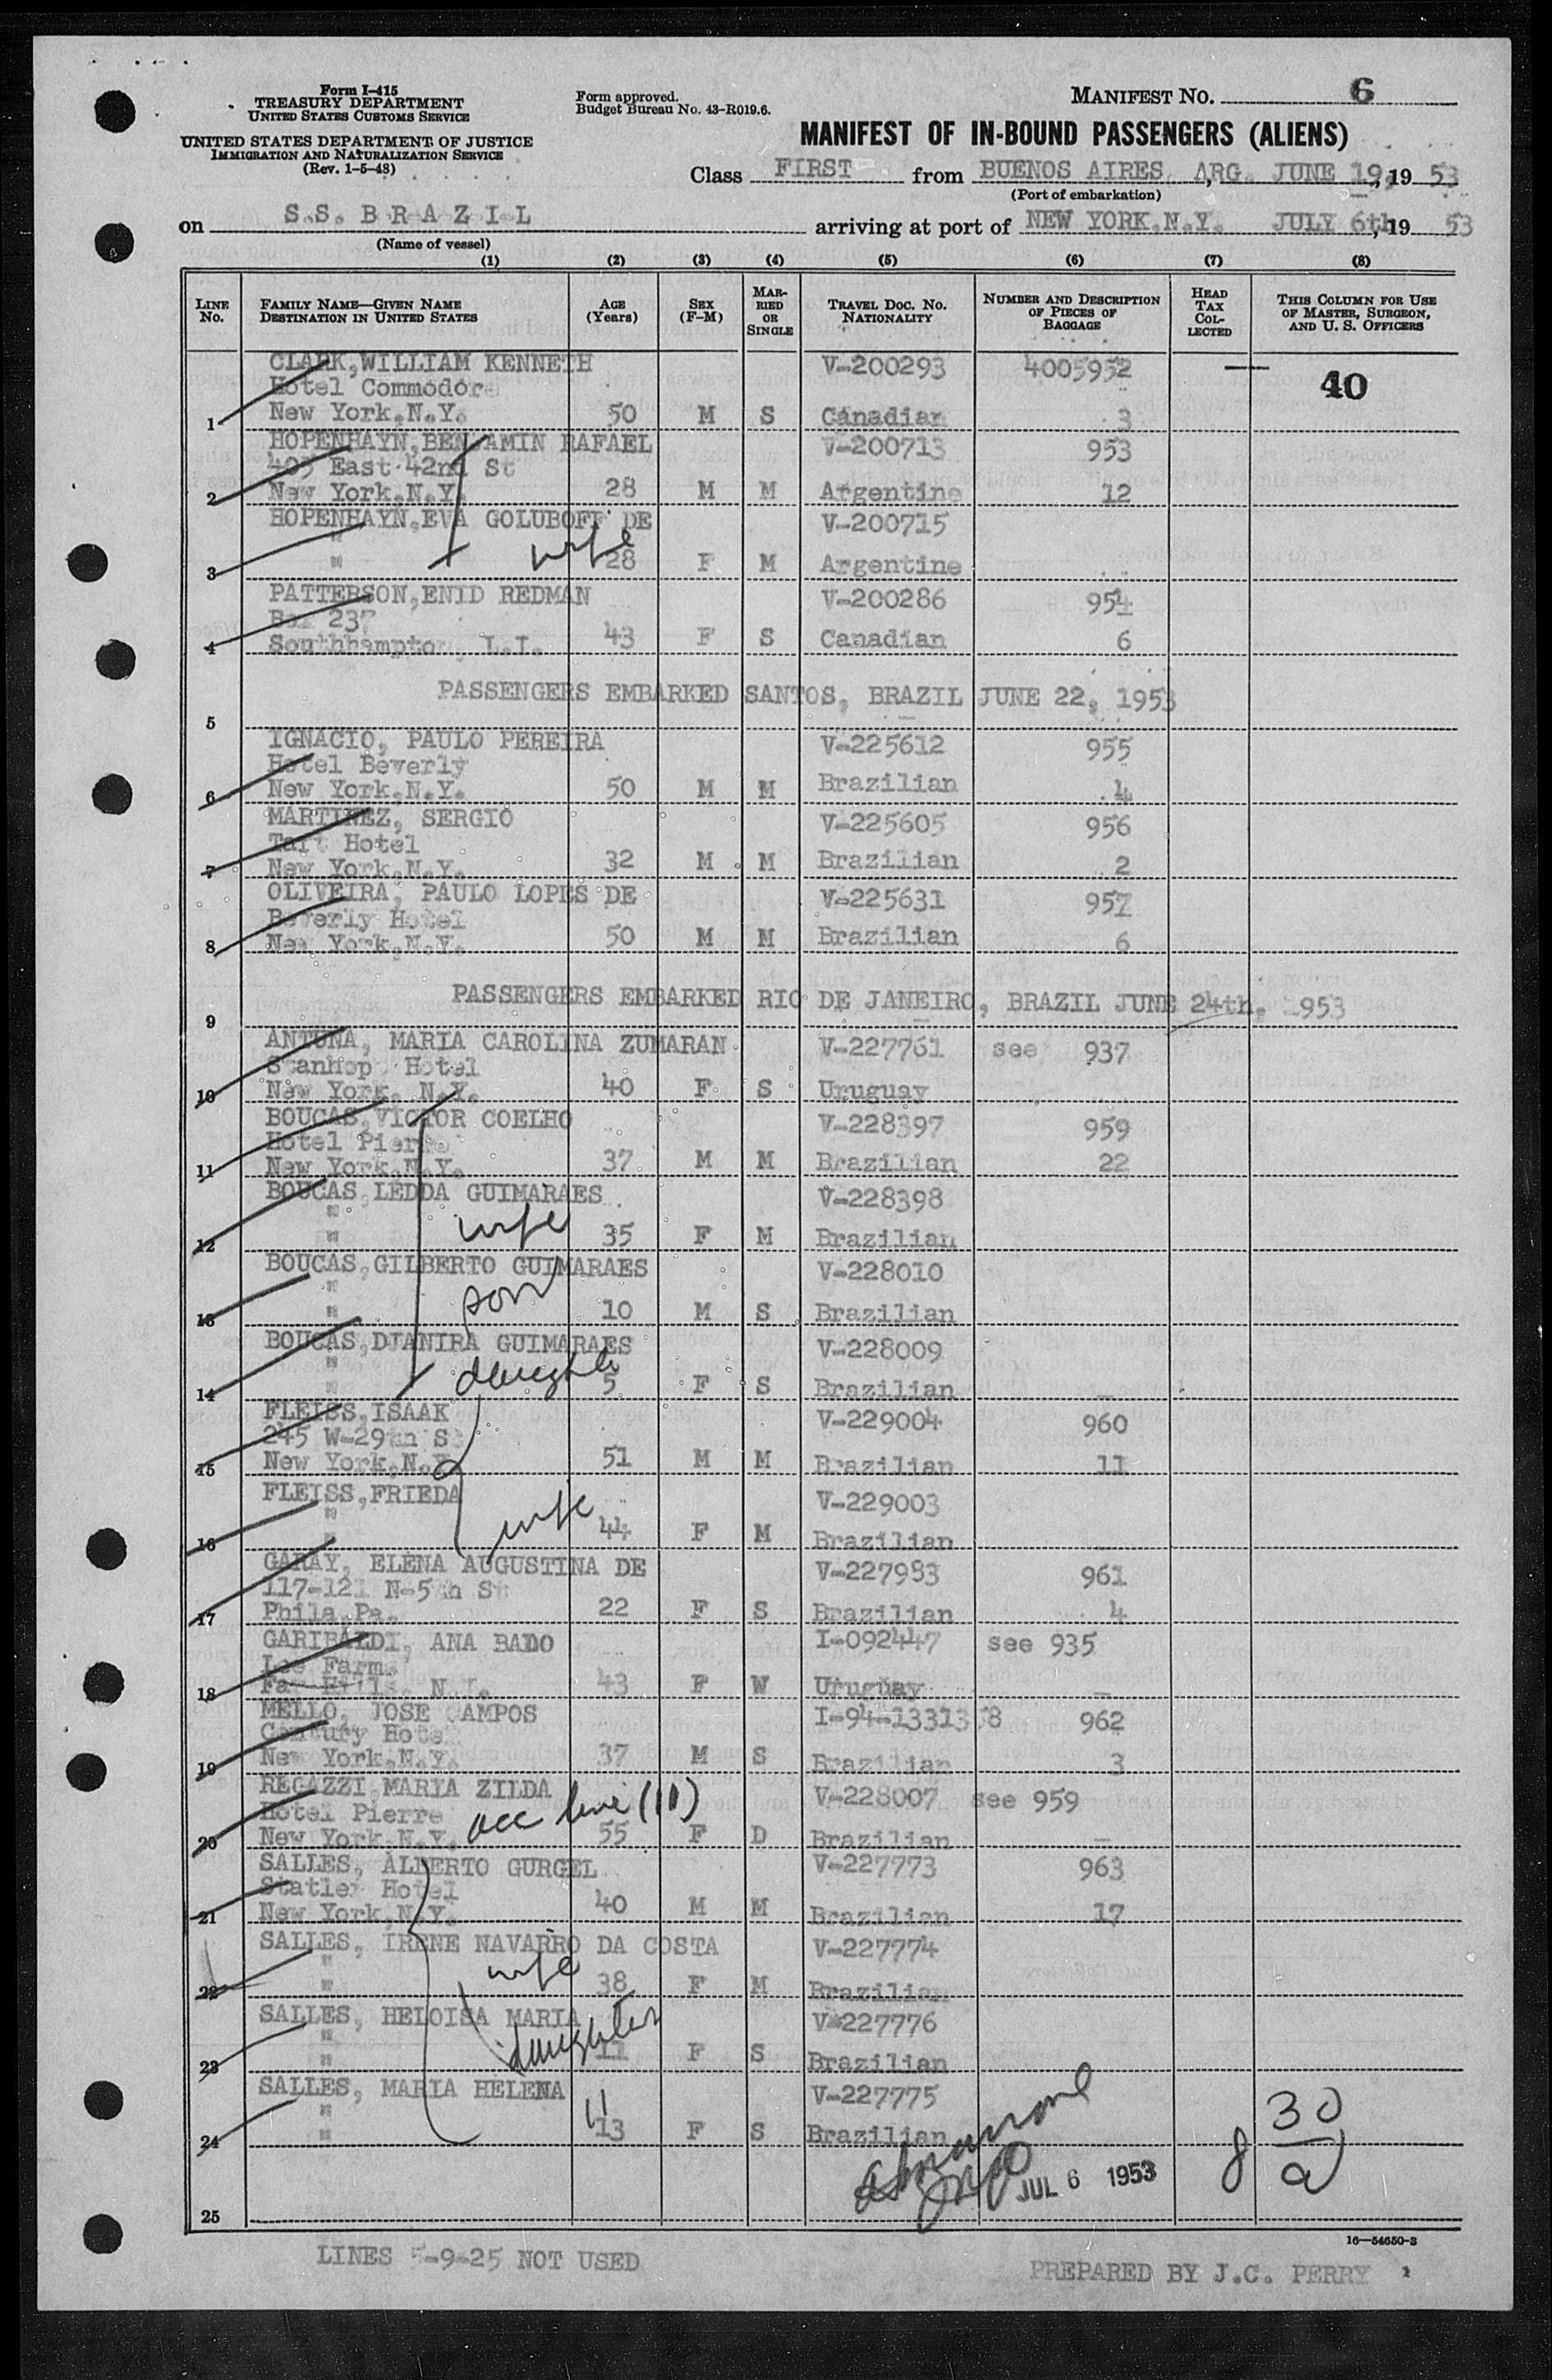 Form I-415
TREASURY DEPARTMENT
UNITED STATES CUSTOMS SERVICE
UNITED STATES DEPARTMENT OF JUSTICE
IMMIGRATION AND NATURALIZATION SERVICE
(Rev. 1-5-48)
Form approved.
Budget Bureau No. 43-R019.6.
MANIFEST NO. 6
MANIFEST OF IN-BOUND PASSENGERS (ALIENS)
Class FIRST from BUENOS AIRES, ARG. JUNE 19, 19 53
(Port of embarkation)
on S.S. B R A Z I L arriving at port of NEW YORK,N.Y. JULY 6th, 19 53
(Name of vessel)
(1) (2) (3) (4) (5) (6) (7) (8)
LINE No. FAMILY NAME—GIVEN NAME DESTINATION IN UNITED STATES AGE (Years) SEX (F-M) MARRIED OR SINGLE TRAVEL DOC. NO. NATIONALITY NUMBER AND DESCRIPTION OF PIECES OF BAGGAGE HEAD TAX COLLECTED THIS COLUMN FOR USE OF MASTER, SURGEON, AND U. S. OFFICERS
CLARK,WILLIAM KENNETH V-200293 4005952 — 40
Hotel Commodore
1 New York,N.Y. 50 M S Canadian 3
HOPENHAYN,BENJAMIN RAFAEL V-200713 953
405 East 42nd St
2 New York,N.Y. 28 M M Argentine 12
HOPENHAYN,EVA GOLUBOFF DE V-200715
"
3 " wife 28 F M Argentine
PATTERSON,ENID REDMAN V-200286 954
Box 237
4 Southhampton, L.I. 43 F S Canadian 6
PASSENGERS EMBARKED SANTOS, BRAZIL JUNE 22, 1953
5
IGNACIO, PAULO PEREIRA V-225612 955
Hotel Beverly
6 New York,N.Y. 50 M M Brazilian 4
MARTINEZ, SERGIO V-225605 956
Taft Hotel
7 New York,N.Y. 32 M M Brazilian 2
OLIVEIRA, PAULO LOPES DE V-225631 957
Beverly Hotel
8 New York,N.Y. 50 M M Brazilian 6
PASSENGERS EMBARKED RIO DE JANEIRO, BRAZIL JUNE 24th, 1953
9
ANTUNA, MARIA CAROLINA ZUMARAN V-227761 see 937
Stanhope Hotel
10 New York, N.Y. 40 F S Uruguay
BOUCAS,VICTOR COELHO V-228397 959
Hotel Pierre
11 New York,N.Y. 37 M M Brazilian 22
BOUCAS,LEDDA GUIMARAES V-228398
"
12 " wife 35 F M Brazilian
BOUCAS,GILBERTO GUIMARAES V-228010
"
13 " son 10 M S Brazilian
BOUCAS,DJANIRA GUIMARAES V-228009
"
14 " daughter 5 F S Brazilian —
FLEISS,ISAAK V-229004 960
245 W-29th St
15 New York,N.Y. 51 M M Brazilian 11
FLEISS,FRIEDA V-229003
"
16 " wife 44 F M Brazilian
GARAY, ELENA AUGUSTINA DE V-227983 961
117-121 N-5th St
17 Phila.Pa. 22 F S Brazilian 4
GARIBALDI, ANA BADO I-092447 see 935
Lee Farms
18 Far Hills, N.J. 43 F W Uruguay —
MELLO, JOSE CAMPOS I-94-1331358 962
Century Hotel
19 New York,N.Y. 37 M S Brazilian 3
REGAZZI,MARIA ZILDA V-228007 see 959
Hotel Pierre acc line (11)
20 New York,N.Y. 55 F D Brazilian —
SALLES, ALBERTO GURGEL V-227773 963
Statler Hotel
21 New York,N.Y. 40 M M Brazilian 17
SALLES, IRENE NAVARRO DA COSTA V-227774
"
22 " wife 38 F M Brazilian
SALLES, HELOISA MARIA V-227776
"
23 " daughter 11 F S Brazilian
SALLES, MARIA HELENA V-227775
" 11
24 " 13 F S Brazilian
JUL 6 1953
30
25
16—54650-3
LINES 5-9-25 NOT USED
PREPARED BY J.C. PERRY